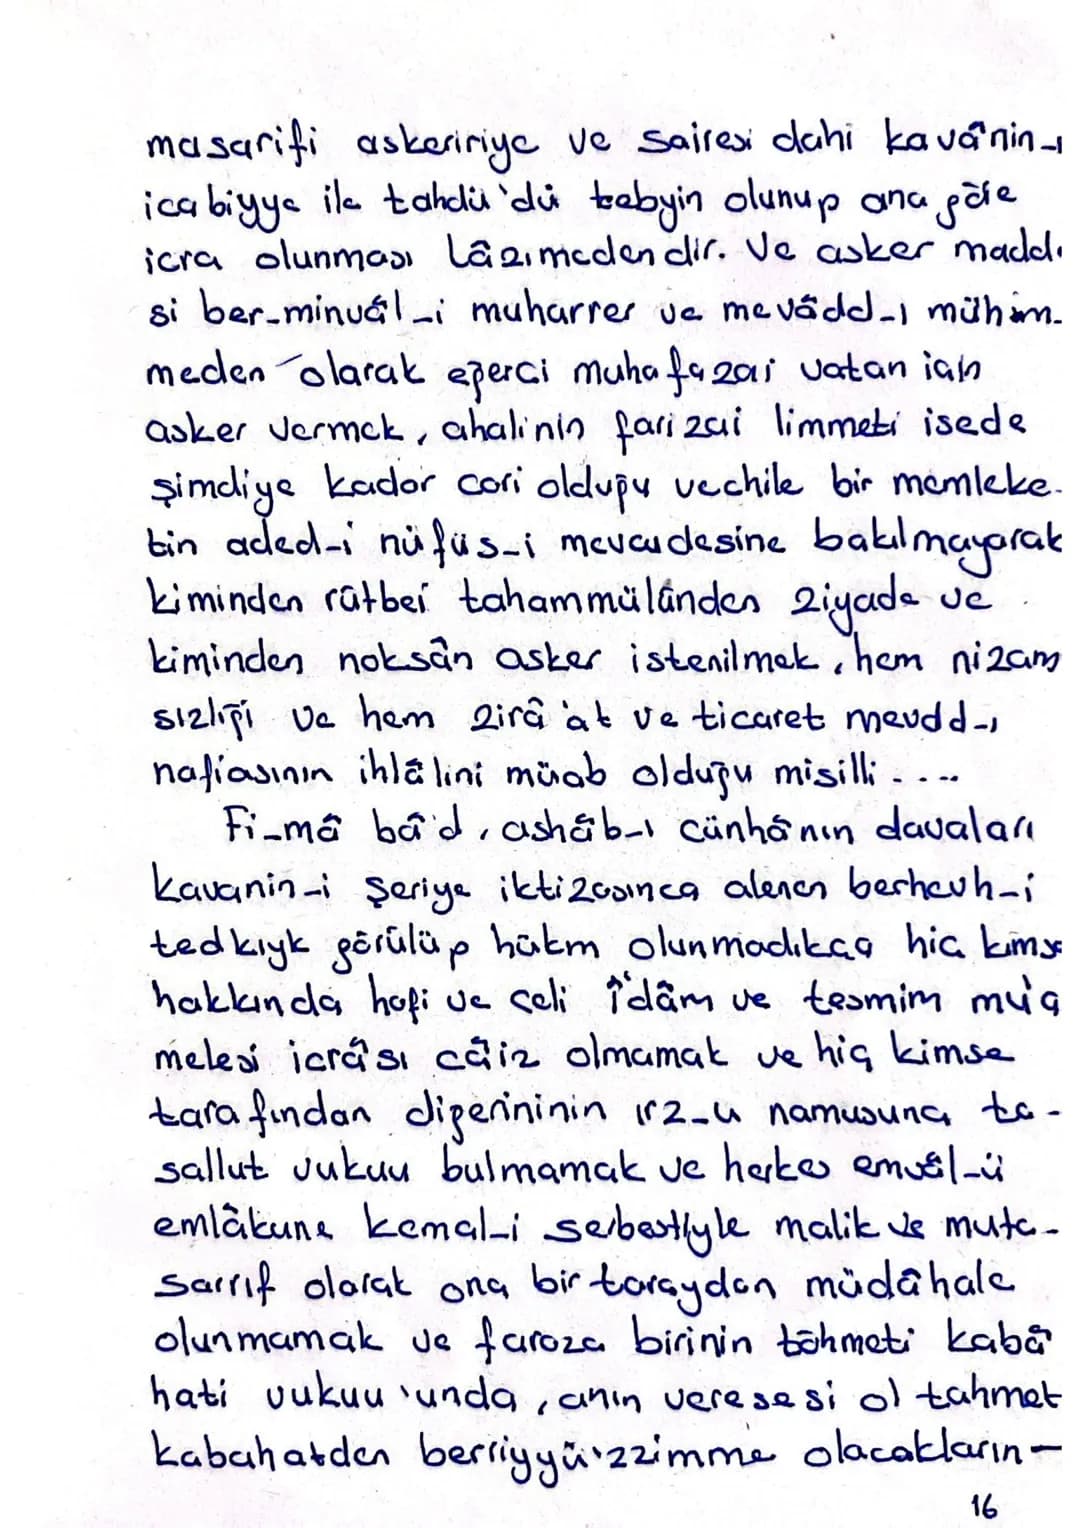 masarifi askeririye ve sairesi dahi kavânin-ı
icabiyye ile tahdü'dü tebyin olunup ana göre
icra olunması lâzımedendir. Ve asker maddı
si ber-minvâl-i muharrer ve mevâdd-ı mühim-
meden olarak eğerci muhafazai vatan için
asker vermek, ahalinin farizai limmeti isede
şimdiye kador cari olduğu vechile bir memleke-
tin aded-i nüfüs-i mevcudesine bakılmayarak
kiminden rütbei tahammülünden ziyade ve
kiminden noksân asker istenilmek, hem nizam
sızlığı ve hem zirâ'at ve ticaret mevdd-ı
nafiasının ihlâlini mücab olduğu misilli....
Fi-mâ bâ'd, ashâb-ı cünhânın davaları
kavanin-i şeriye iktizasınca alenen berhevh-i
tedkıyk görülüp hükm olunmadıkça hiç kimse
hakkında hafi ve celi î'dâm ve tesmim mu'a
melesi icrâ'sı câiz olmamak ve hiç kimse
tarafından diğerininin ırz-u namusuna ta-
sallut vukuu bulmamak ve herkes emvâl-ü
emlâkune kemal-i serbestiyle malik ve muta-
sarrıf olarak ona bir taraydan müdâhale
olunmamak ve faroza birinin töhmeti kabâ
hati vukuu'unda, anın veresesi ol tahmet
kabahatden berriyyü'zzimme olacakların-
16